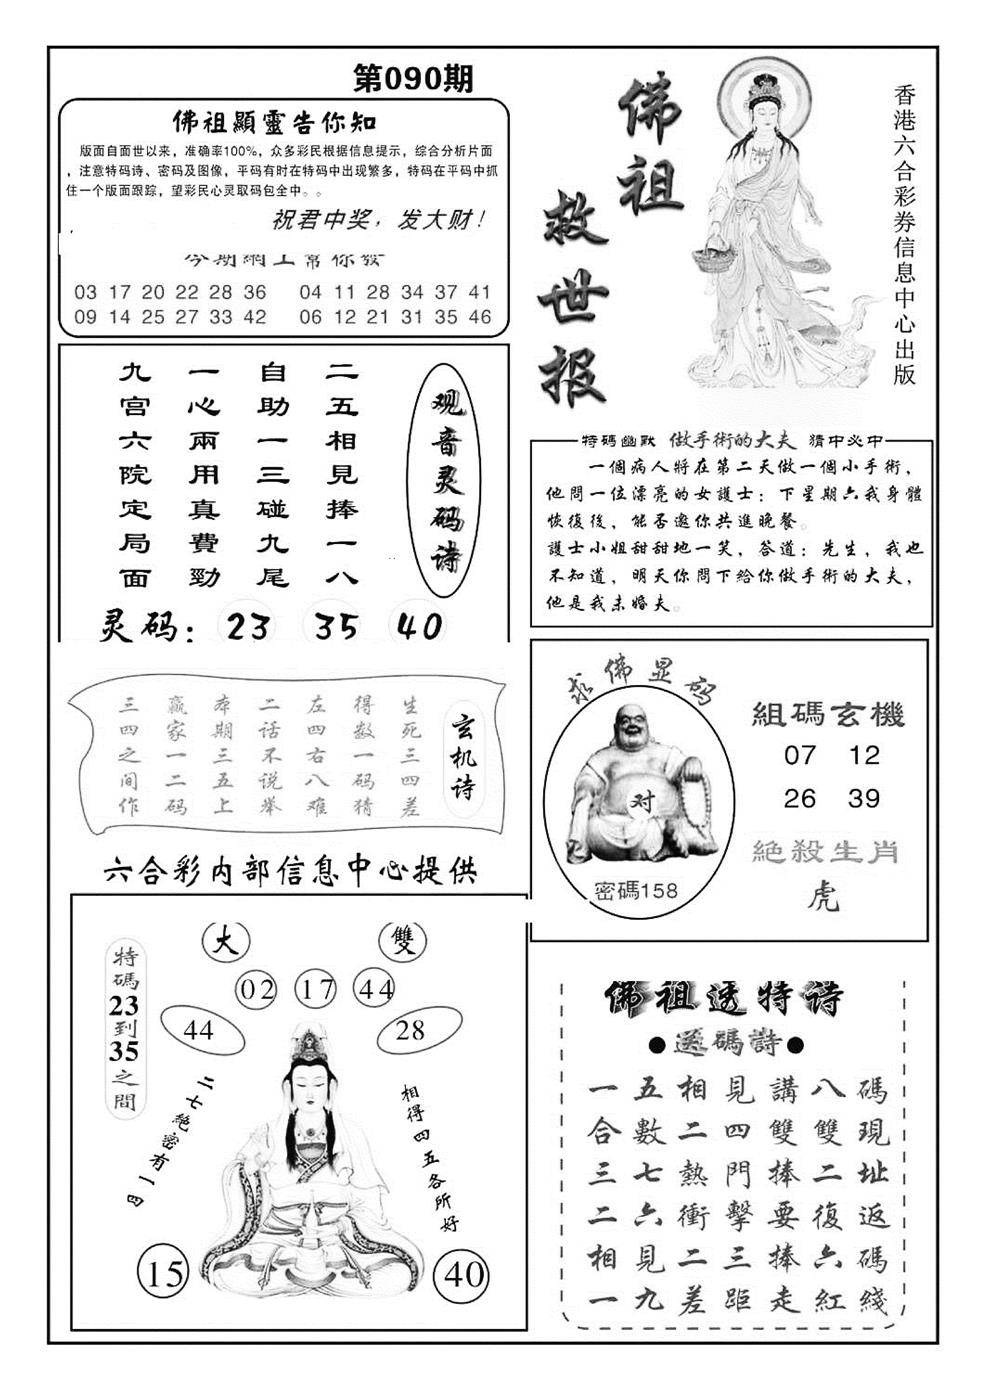 第090期
佛祖顯靈告你知
版面自面世以来，准确率100%，众多彩民根据信息提示，综合分析片面
，注意特码诗、密码及图像，平码有时在特码中出现繁多，特码在平码中抓
住一个版面跟踪，望彩民心灵取码包全中。。
祝君中奖，发大财！
03 17 20 22 28 36 04 11 28 34 37 41
09 14 25 27 33 42 06 12 21 31 35 46
佛祖
救世报
香港六合彩券信息中心出版
观音灵码诗
二五相見捧一八
自助一三碰九尾
一心兩用真費勁
九宫六院定局面
灵码：23 35 40
特碼幽默 做手術的大夫 猜中必中
一個病人將在第二天做一個小手術，
他問一位漂亮的女護士：下星期六我身體
恢復後，能否邀你共進晚餐。
護士小姐甜甜地一笑，答道：先生，我也
不知道，明天你問下給你做手術的大夫，
他是我未婚夫。
玄机诗
生死三四差
得数一码猜
左四右八难
二话不说举
本期三五上
赢家一二码
三四之间作
求佛显码
对
密碼158
組碼玄機
07 12
26 39
絶殺生肖
虎
六合彩内部信息中心提供
大 雙
02 17 44
44 28
特碼23到35之間
二七絶密有一四
相得四五各所好
15 40
佛祖透特诗
●送碼詩●
一五相見講八碼
合數二四雙雙現
三七熱門捧二址
二六衝擊要復返
相見二三捧六碼
一九差距走紅綫